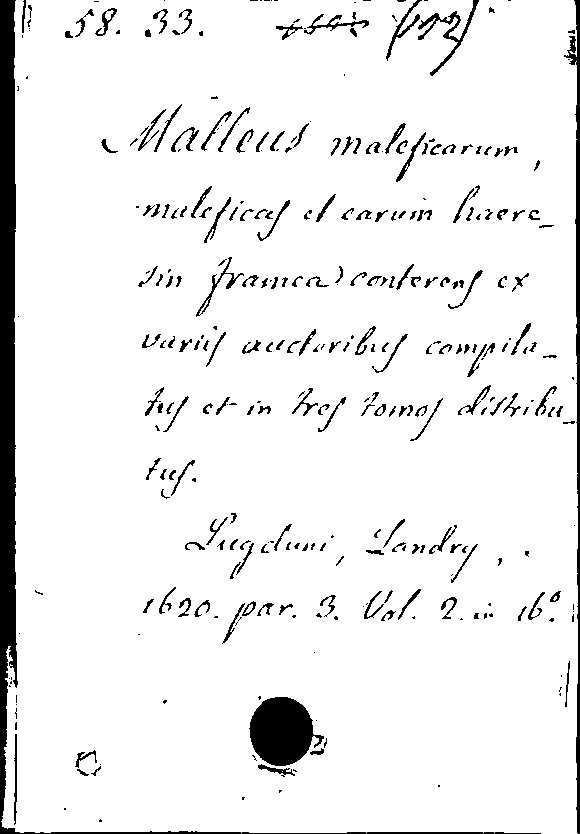 58. 33. (192)
Malleus maleficarum,
maleficas et earum haere_
sin framea conterens ex
variis auctoribus compila_
tus et in tres tomos distribu_
tus.
Lugduni, Landry,
1620. par. 3. Vol. 2. in 16º.